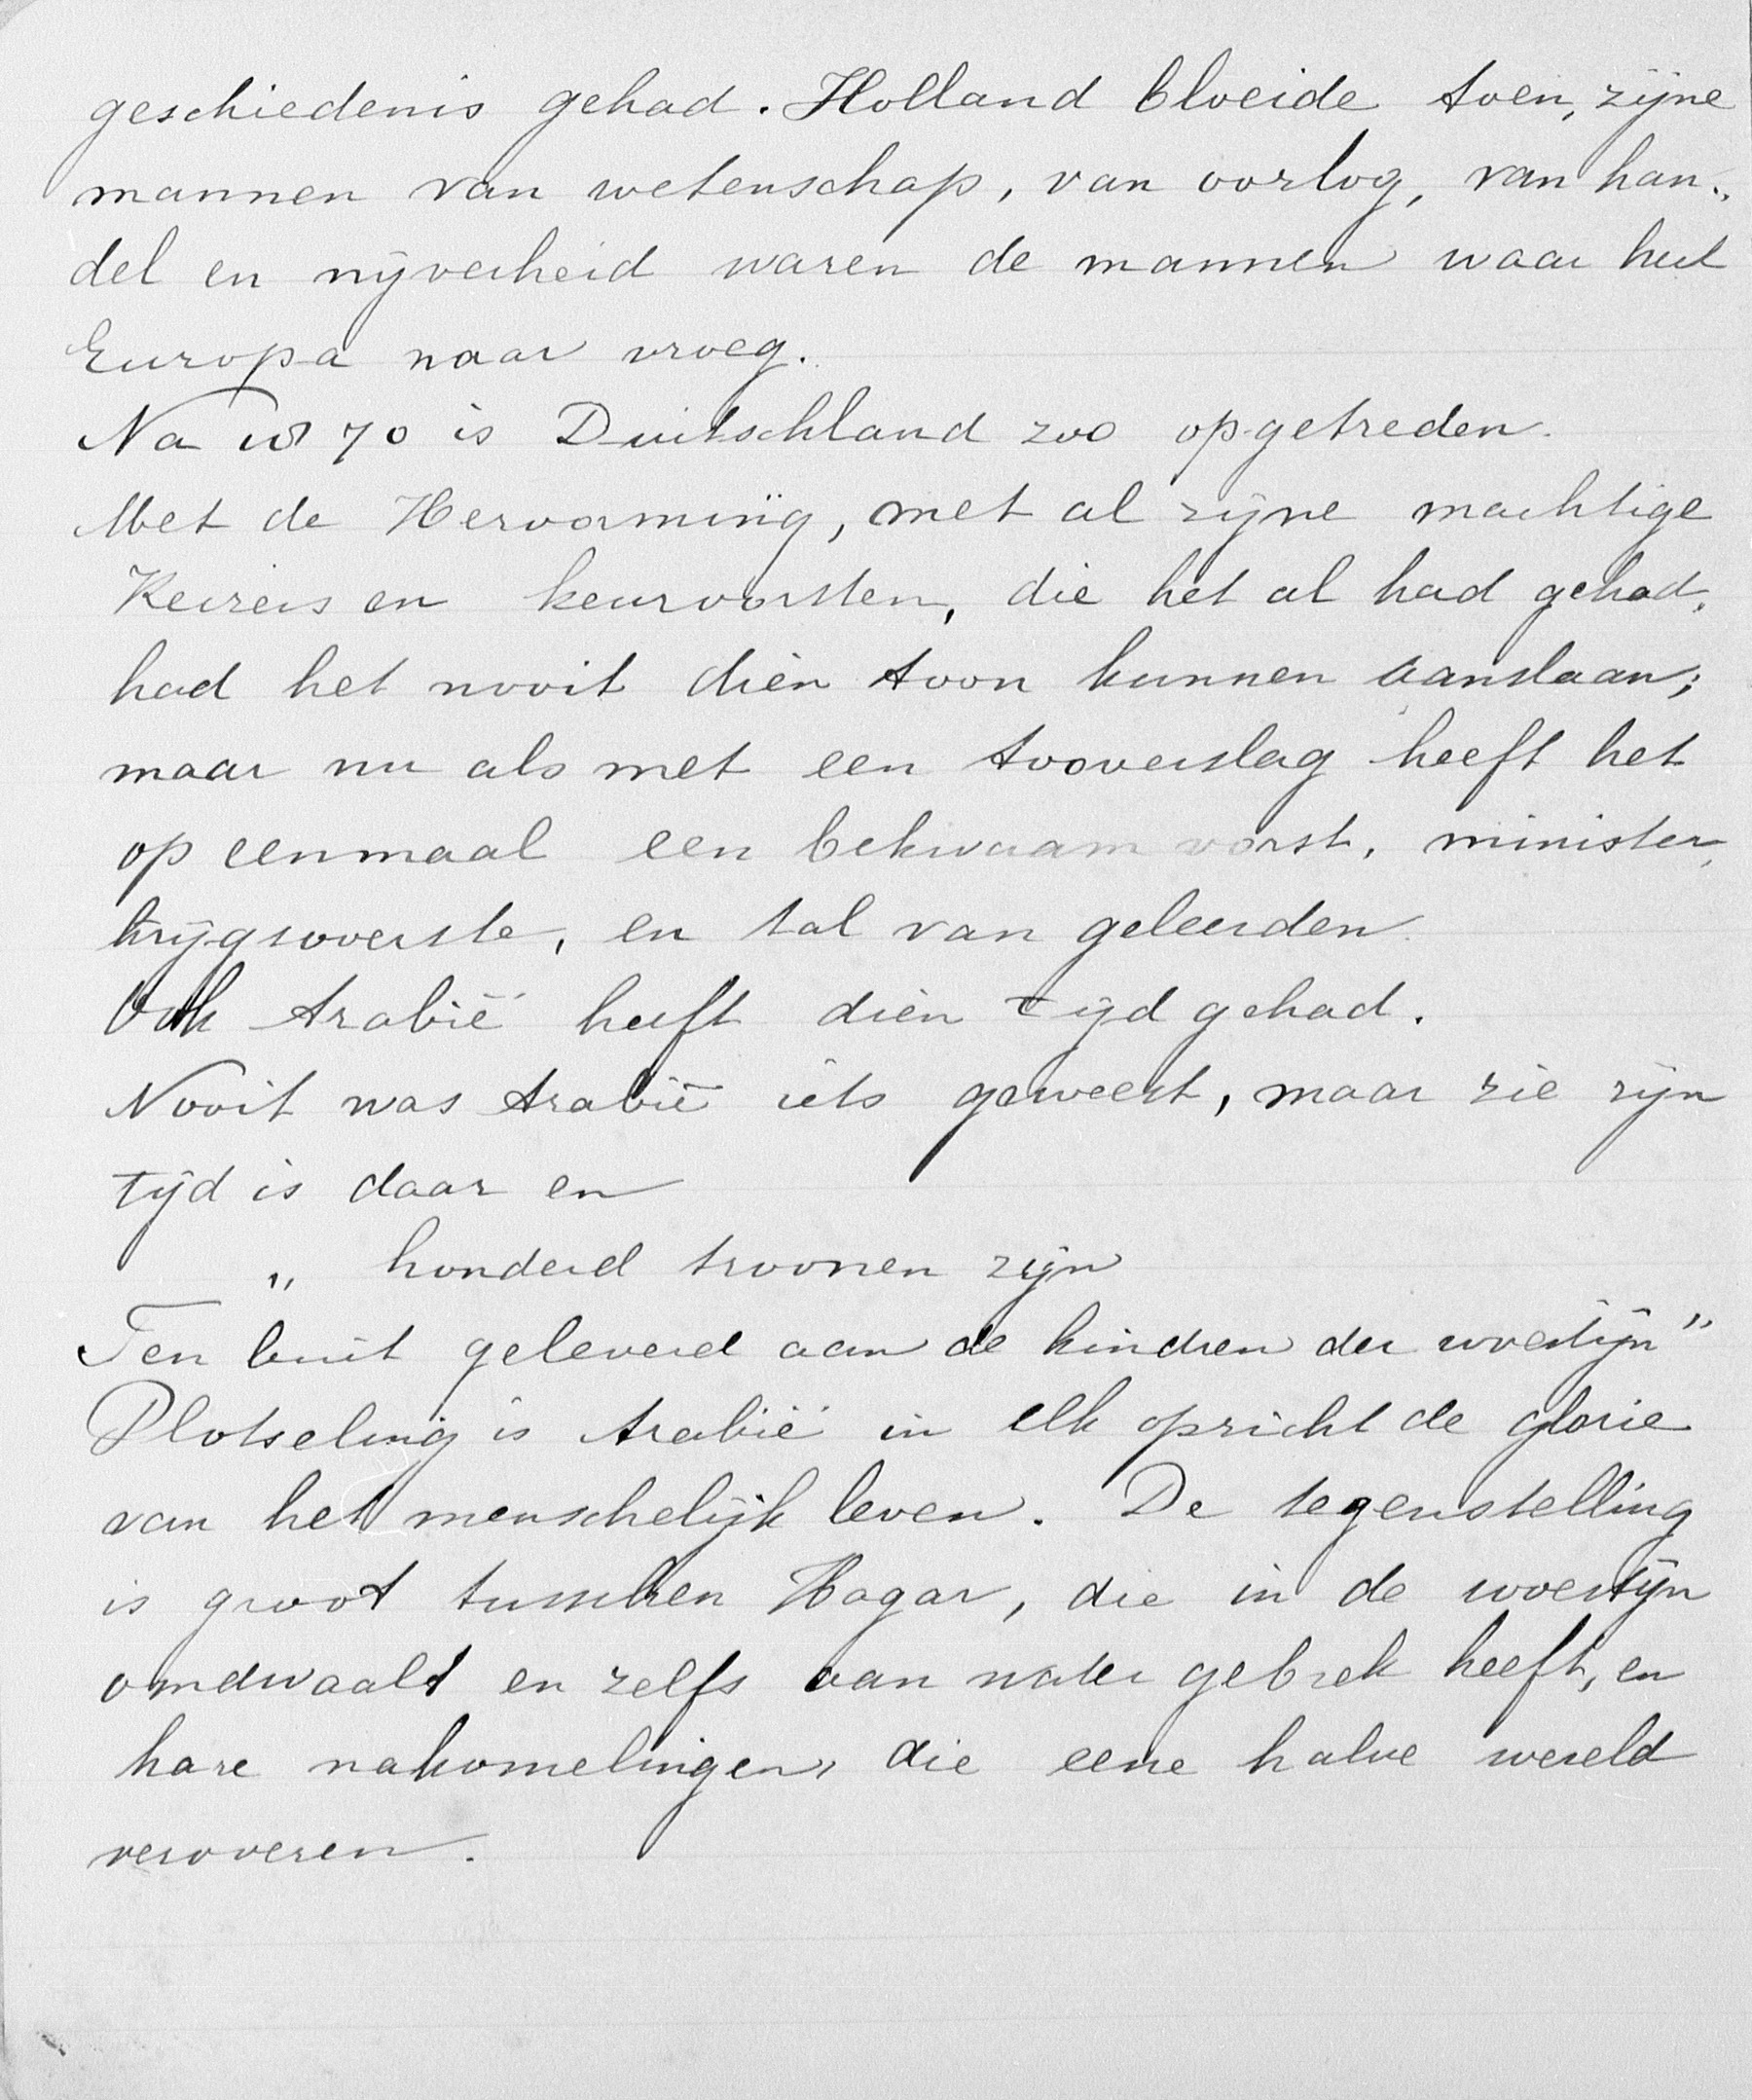 geschiedenis gehad. Holland bloeide toen, zijne
mannen van wetenschap, van oorlog, van han„
del en nijverheid waren de mannen waar heel
Europa naar vroeg.
Na 70 is Duitschland zoo opgetreden.
Met de Hervorming, met al zijne machtige
Keizers en keurvorsten, die het al had gehad,
had het nooit dièn toon kunnen aanslaan;
maar nu als met een tooverslag heeft het
op eenmaal een bekwaam vorst, minister,
krijgsoverste, en tal van geleerden.
Ook Arabië heeft dièn tijd gehad.
Nooit was Arabië iets geweest, maar zie zijn
tijd is daar en
„ honderd troonen zijn
Ten buit geleverd aan de kindren der woestijn"
Plotseling is Arabië in elk opzicht de glorie
van het menschelijk leven. De tegenstelling
is groot tusschen Hagar, die in de woestijn
omdwaalt en zelfs aan water gebrek heeft, en
hare nakomelingen, die eene halve wereld
veroveren.